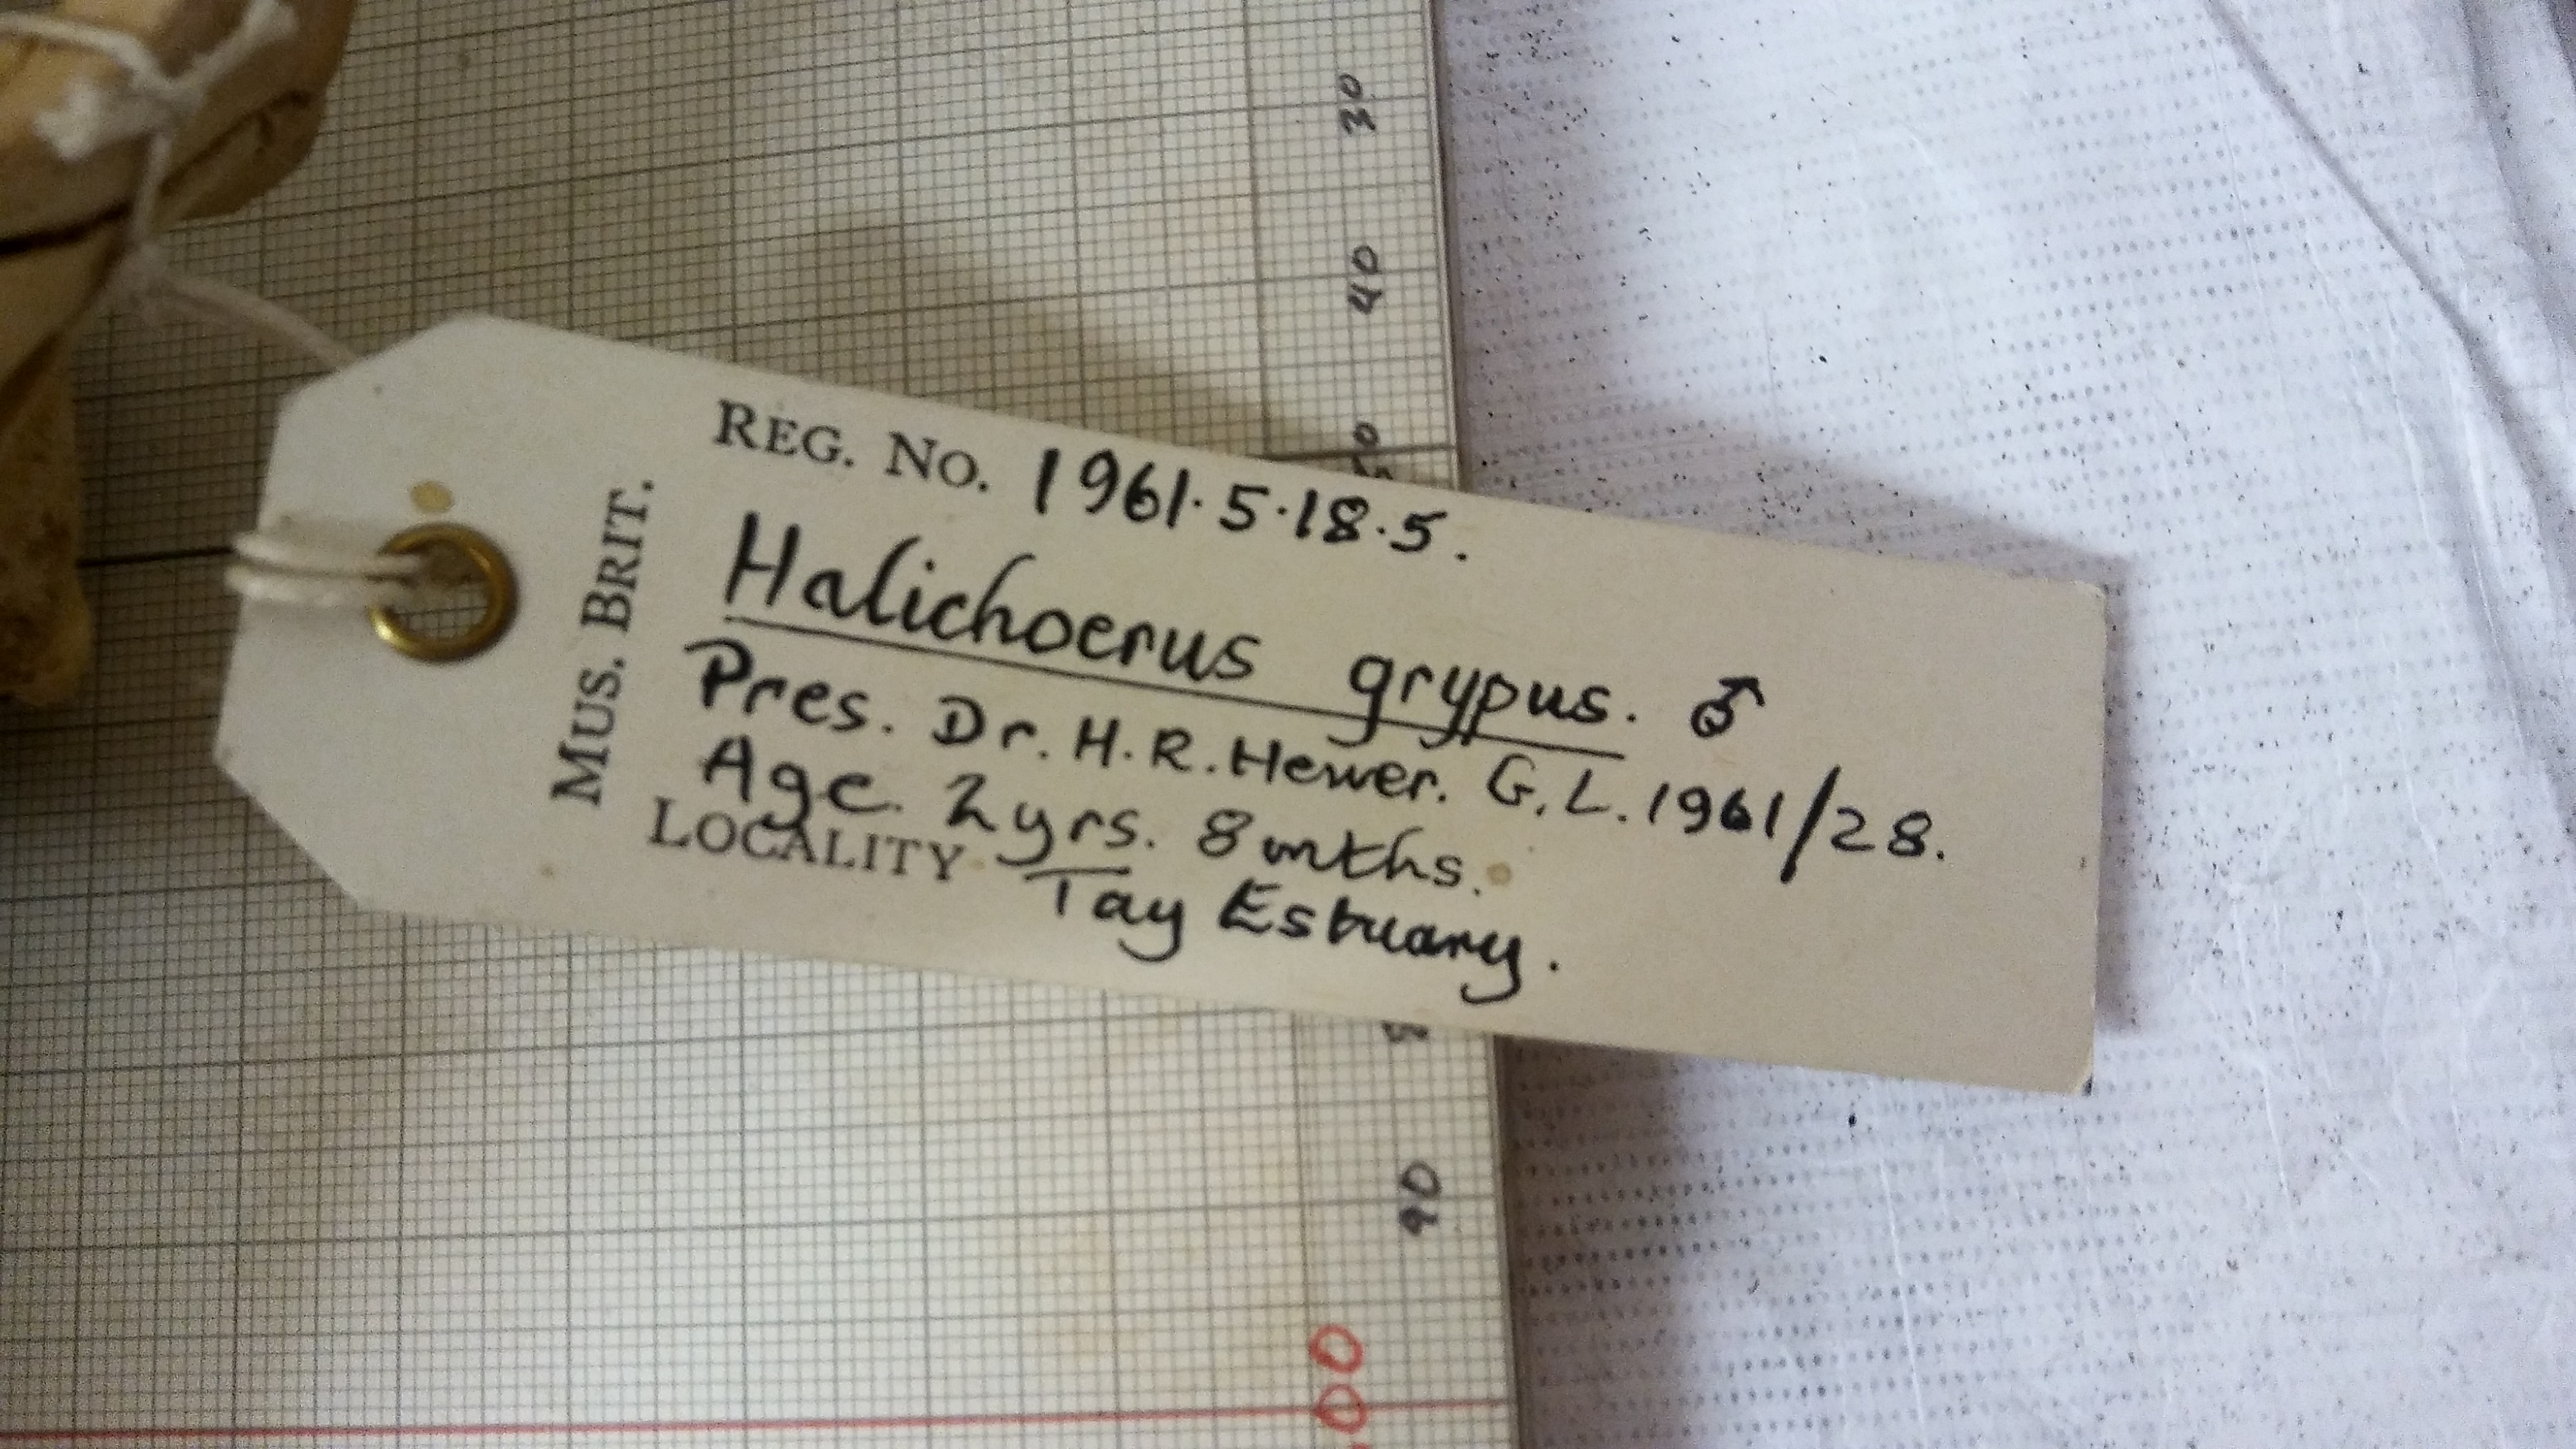 MUS. BRIT.
REG. NO. 1961.5.18.5.
Halichoerus grypus. ♂
Pres. Dr. H. R. Hewer. G.L. 1961/28.
Age 2yrs. 8 mths.
LOCALITY Tay Estuary.
00
90
40
30